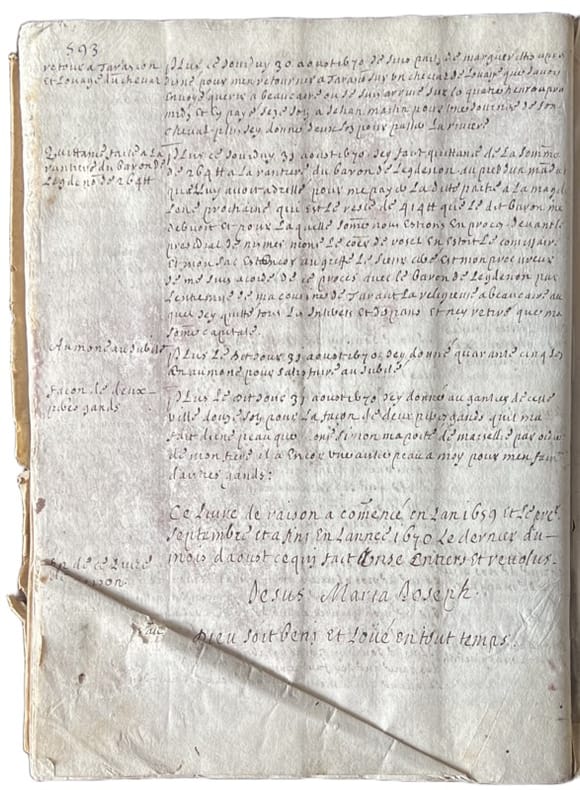 593
retour a Tarascon
et Louage du cheval
plus ce Jourduy 30 aoust 1670 Je suis party de
dine pour men retourner a Tarascon sur un cheval de louage que Javois
Envoyé querir a beaucaire ou Je suis arrivé sur la quatre heures apres
midy et Ey payé seze soy a Jehan martin pour une Journée de son
cheval plus Jey donné deux soy pour passer La riviere
Quittance faite a La
rantiere du baron de
Leydenon de 264 tt
plus ce Jourduy 31 aoust 1670 Jey fait quittance de La somme
de 264 tt a La rantiere du baron de Leydenon au pied du
quelluy avoit adressé pour me payer La dite partie a la magde
lene prochaine que est Le reste de 414 tt que Le dit baron me
debvoit et pour Laquelle somme nous estions En proces devant le
presidial de nimes mons Le de rosel En estoit Le comissaire
et mon sac est Encor au greffe Le sieur est mon procureur
Je me suis acordé de ce proces avec Le baron de Leydenon par
Lentremise de ma cousine de Taraut La religieuse a beaucaire au
quel Jey quitté tous Les Interets et despans et ney retiré que ma
somme capitale.
Aumone au Jubilé
plus Le dit Jour 31 aoust 1670, Jey donné quarante cinq soy
En aumone pour satisfaire au Jubilé
façon de deux
pères gands
plus Le dit Jour 31 aoust 1670 Jey donné au gantier de ceste
ville douze soy pour La façon de deux peres gands quil ma
fait dune peau que simon ma porté de marseille par ordre
de mon frere il a Encor une autre peau a moy pour men faire
dautres gands:
Ce Livre de raison a comencé en Lan 1659 et Le pre
Septembre et a fini En Lannee 1670 Le dernier du
mois daoust ce qui fait onse Entiers et revolus.
fin de ce Livre
Jesus Maria Joseph.
Dieu soit beni et Loüé en tout temps.